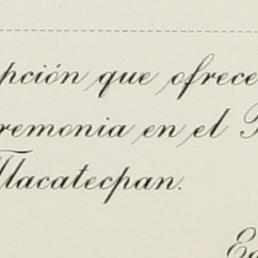 pción que ofrece
remonia en el
Tlacatecpan.